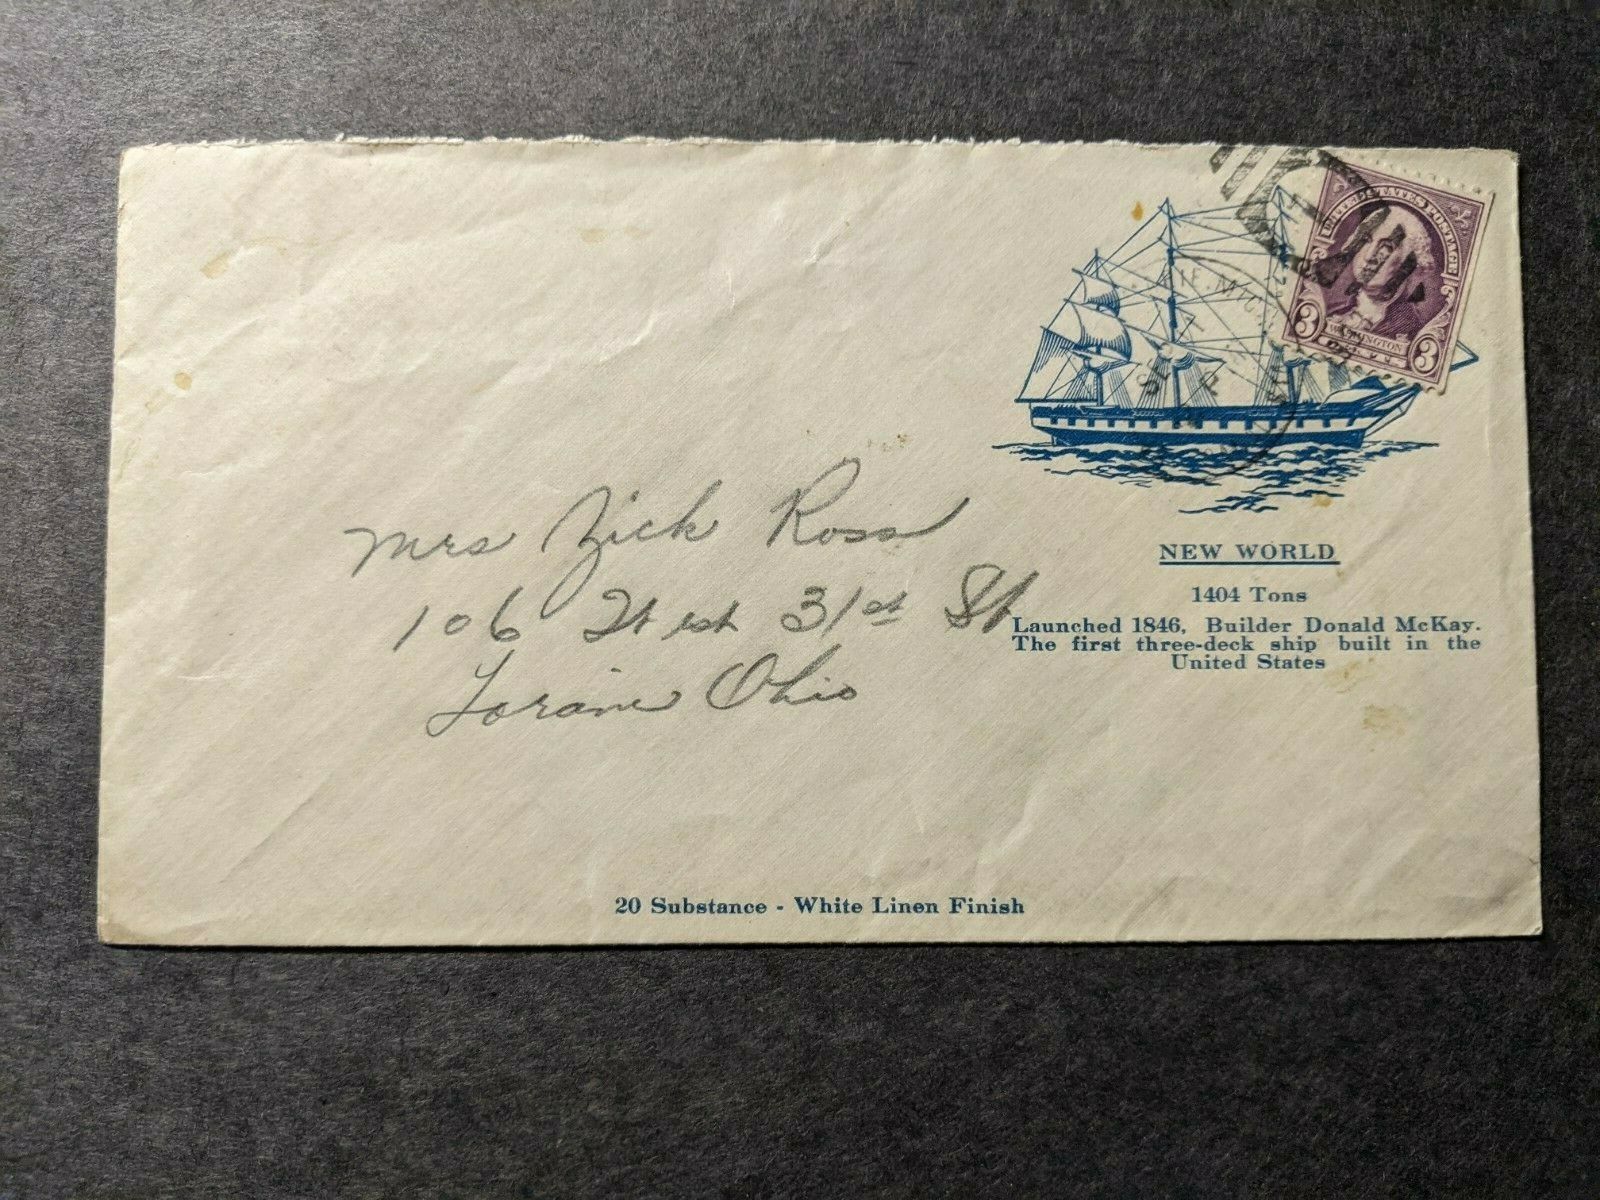 UNITED STATES POSTAGE
3 WASHINGTON 3
Mrs Zick Ross
106 West 31st St
Lorain Ohio
NEW WORLD
1404 Tons
Launched 1846, Builder Donald McKay.
The first three-deck ship built in the
United States
20 Substance - White Linen Finish